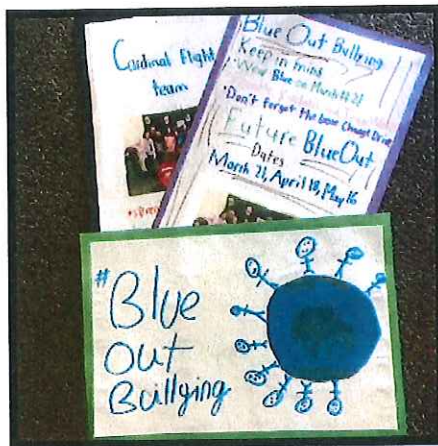 Cardinal Flight
team
Blue Out Bullying
Keep in mind
Wear Blue on March 21
"Don't forget the loose Change Drive
Future Blue Out
Dates
March 21, April 18, May 16
#Blue
Out
Bullying